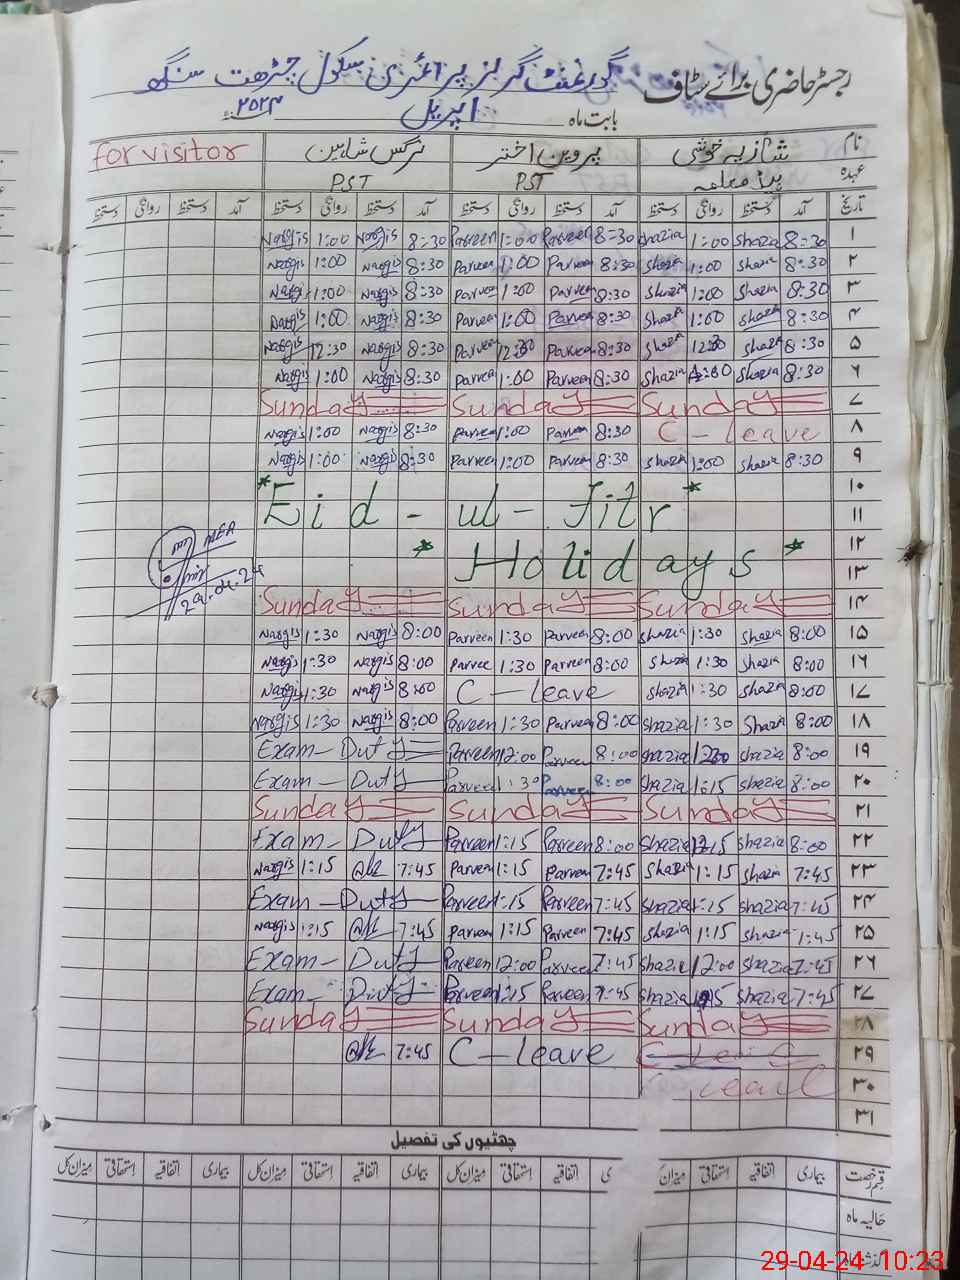 رجسٹر حاضری برائے سٹاف گورنمنٹ گرلز پرائمری سکول چڑھت سنگھ
بابت ماہ اپریل ۲۰۲۴
نام شازیہ خوشی پروین اختر نرگس شاہین For visitor
عہدہ ہیڈ معلمہ PST PST
تاریخ آمد دستخط روانگی دستخط آمد دستخط روانگی دستخط آمد دستخط روانگی دستخط آمد دستخط روانگی دستخط
۱ 8:30 Shazia 1:00 Shazia 8:30 Parveen 1:00 Parveen 8:30 Nargis 1:00 Nargis
۲ 8:30 Shazia 1:00 Shazia 8:30 Parveen 1:00 Parveen 8:30 Nargis 1:00 Nargis
۳ 8:30 Shazia 1:00 Shazia 8:30 Parveen 1:00 Parveen 8:30 Nargis 1:00 Nargis
۴ 8:30 Shazia 1:00 Shazia 8:30 Parveen 1:00 Parveen 8:30 Nargis 1:00 Nargis
۵ 8:30 Shazia 12:30 Shazia 8:30 Parveen 12:30 Parveen 8:30 Nargis 12:30 Nargis
۶ 8:30 Shazia 1:00 Shazia 8:30 Parveen 1:00 Parveen 8:30 Nargis 1:00 Nargis
۷ Sunday Sunday Sunday
۸ C - leave 8:30 Parveen 1:00 Parveen 8:30 Nargis 1:00 Nargis
۹ 8:30 Shazia 1:00 Shazia 8:30 Parveen 1:00 Parveen 8:30 Nargis 1:00 Nargis
۱۰
۱۱ Eid - ul - Fitr
۱۲
۱۳ Holidays
MEA
29.04.24
۱۴ Sunday Sunday Sunday
۱۵ 8:00 Shazia 1:30 Shazia 8:00 Parveen 1:30 Parveen 8:00 Nargis 1:30 Nargis
۱۶ 8:00 Shazia 1:30 Shazia 8:00 Parveen 1:30 Parvee 8:00 Nargis 1:30 Nargis
۱۷ 8:00 Shazia 1:30 Shazia C - leave 8:00 Nargis 1:30 Nargis
۱۸ 8:00 Shazia 1:30 Shazia 8:00 Parveen 1:30 Parveen 8:00 Nargis 1:30 Nargis
۱۹ 8:00 Shazia Shazia 8:00 Parveen 12:00 Parveen Exam - Duty
۲۰ 8:00 Shazia 1:15 Shazia 8:00 Parveen 1:30 Parveen Exam - Duty
۲۱ Sunday Sunday Sunday
۲۲ 8:00 Shazia Shazia 8:00 Parveen 1:15 Parveen Exam - Duty
۲۳ 7:45 Shazia 1:15 Shazia 7:45 Parveen 1:15 Parveen 7:45 1:15 Nargis
۲۴ 7:45 Shazia 1:15 Shazia 7:45 Parveen 1:15 Parveen Exam - Duty
۲۵ 7:45 Shazia 1:15 Shazia 7:45 Parveen 1:15 Parveen 7:45 1:15 Nargis
۲۶ 7:45 Shazia 12:00 Shazia 7:45 Parveen 12:00 Parveen Exam - Duty
۲۷ 7:45 Shazia Shazia 7:45 Parveen 1:15 Parveen Exam - Duty
۲۸ Sunday Sunday Sunday
۲۹ C - Leave C - leave 7:45
۳۰ leave
۳۱
چھٹیوں کی تفصیل
قسم رخصت بیماری اتفاقیہ استحقاقی میزان اتفاقیہ استحقاقی میزان کل بیماری اتفاقیہ استحقاقی میزان کل بیماری اتفاقیہ استحقاقی میزان کل
حالیہ ماہ
29-04-24 10:23